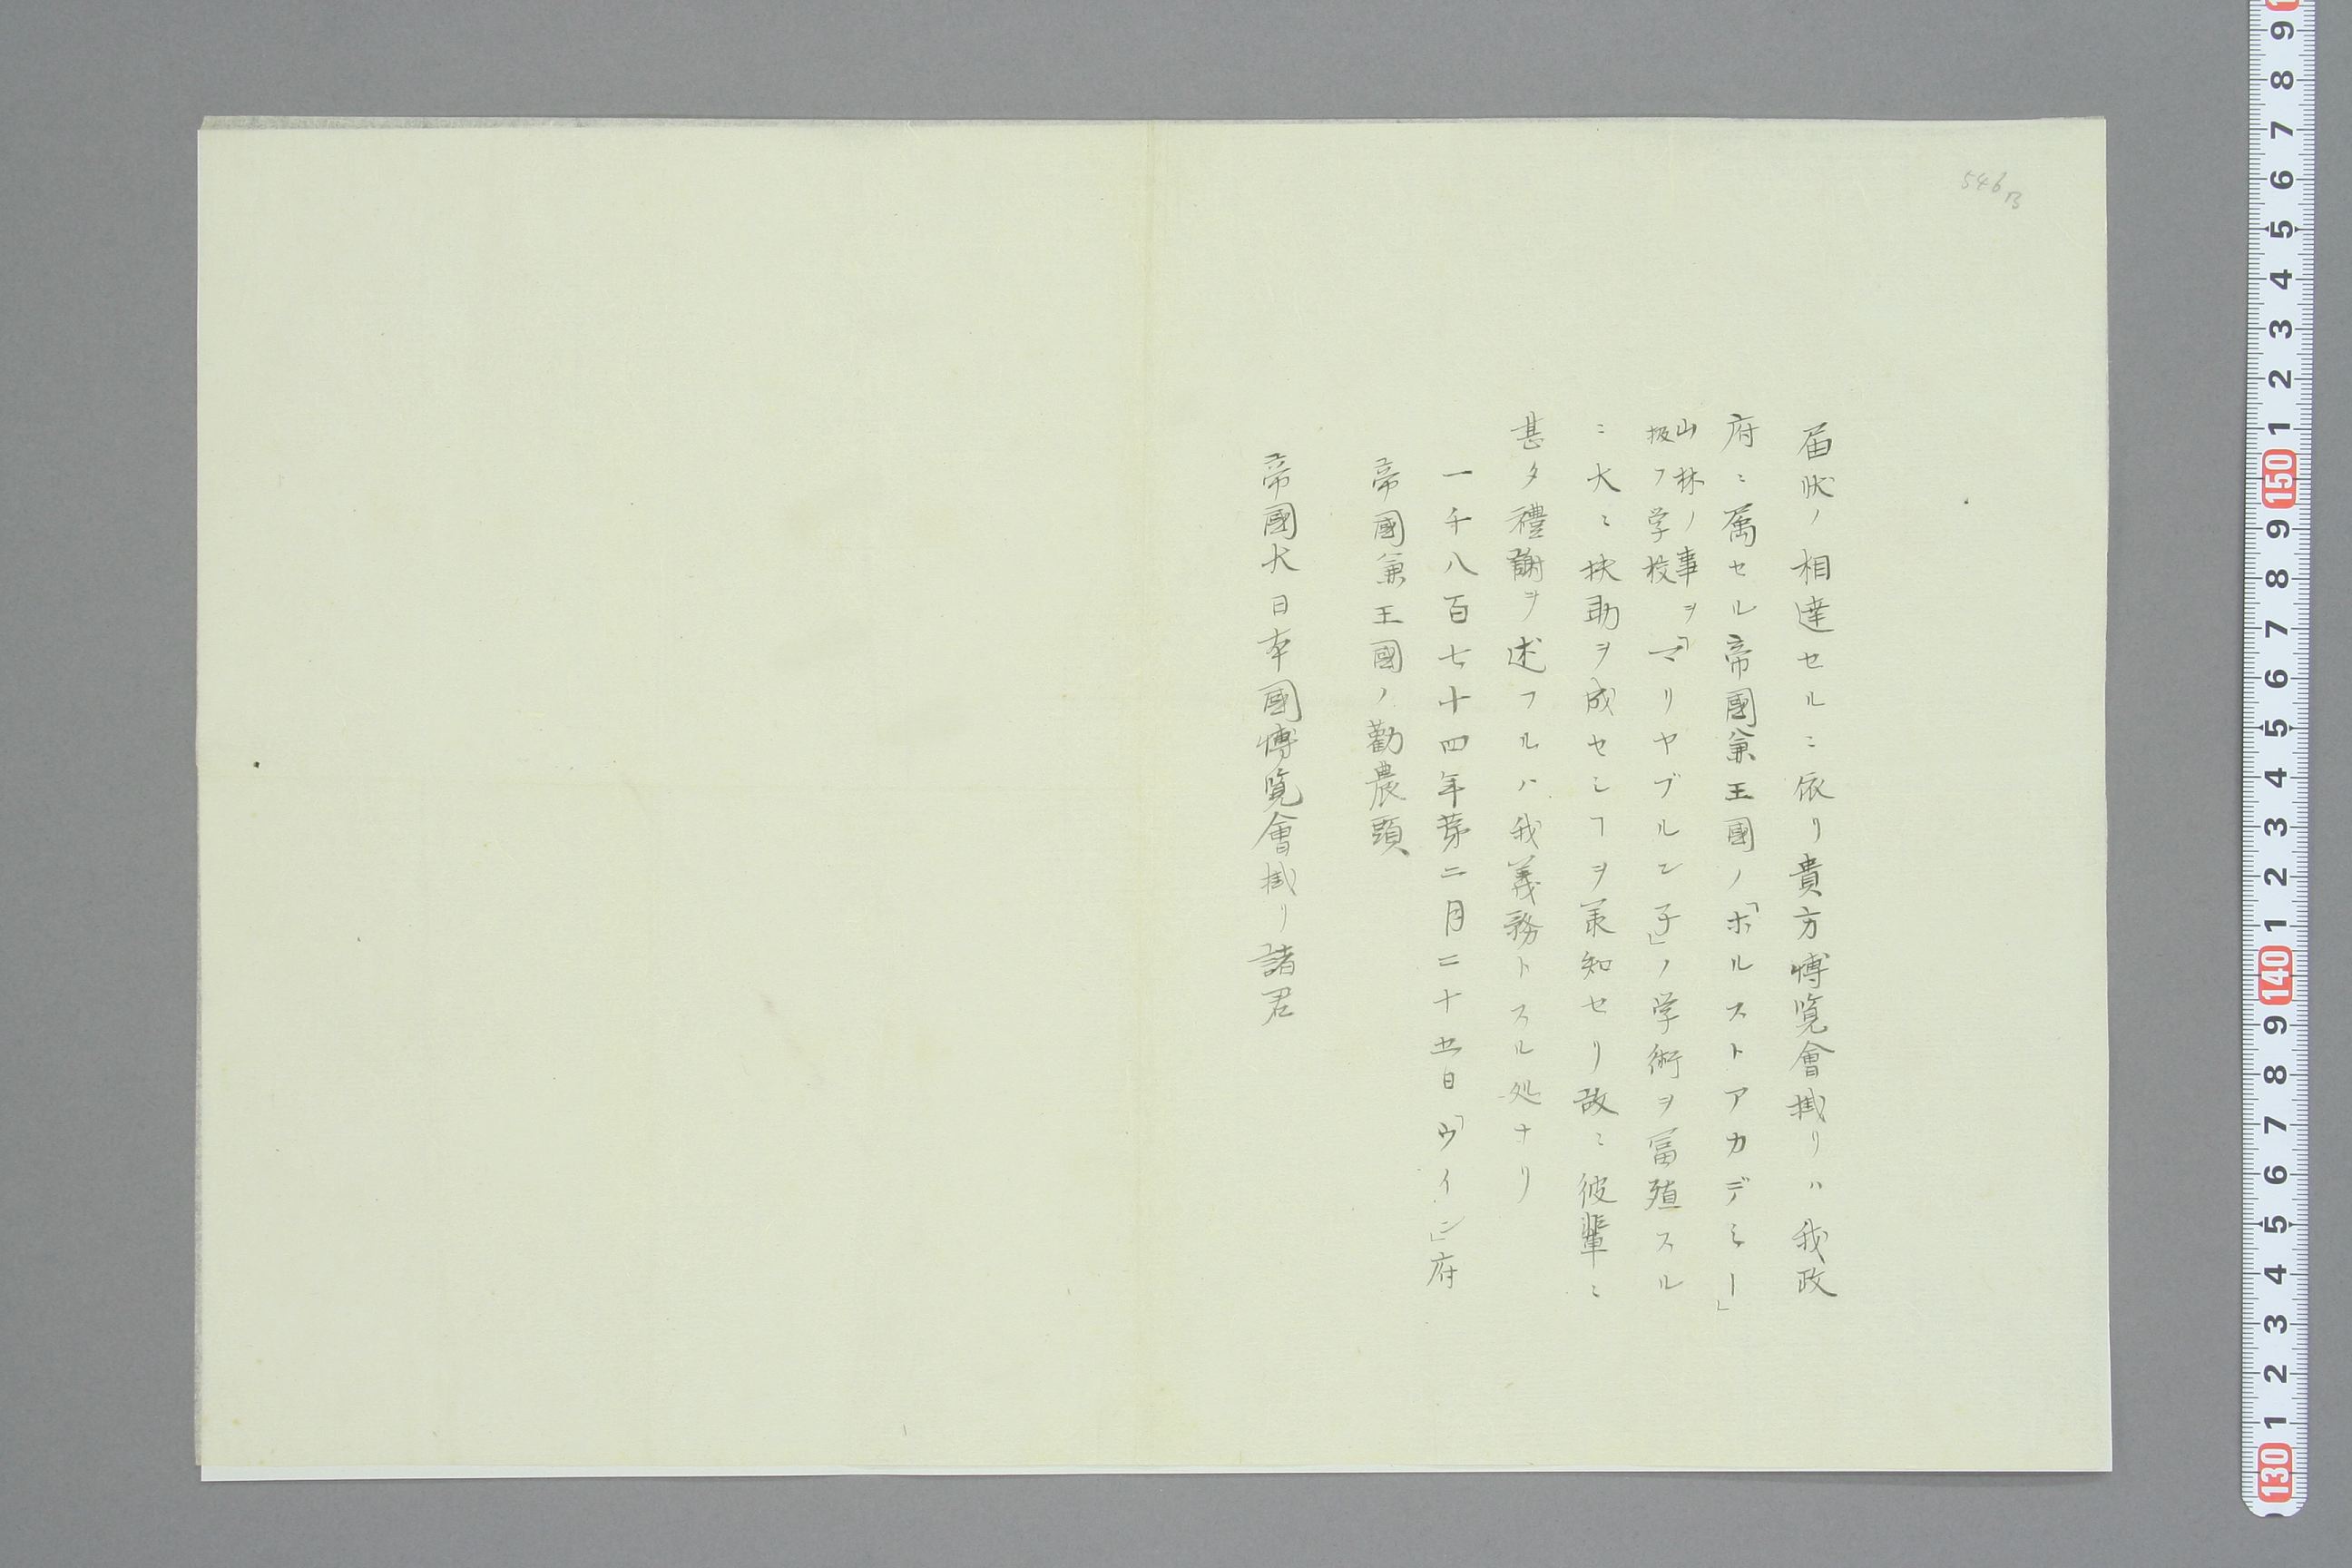 546B
届状ノ相達セルニ依リ貴方博覧會掛リハ我政
府ニ属セル帝國兼王國ノ「ホルストアカデミー」
山林ノ事ヲ
扱フ学校「マリヤブルン子」ノ学術ヲ冨殖スル
ニ大ニ扶助ヲ成セシヿヲ承知セリ故ニ彼輩ニ
甚タ禮謝ヲ述フルハ我義務トスル処ナリ
一千八百七十四年第二月二十五日「ウイン」府
帝國兼王國ノ勸農頭
帝國大日本國博覧會掛リ諸君
9 8 7 6 5 4 3 2 1 150 9 8 7 6 5 4 3 2 1 140 9 8 7 6 5 4 3 2 1 130